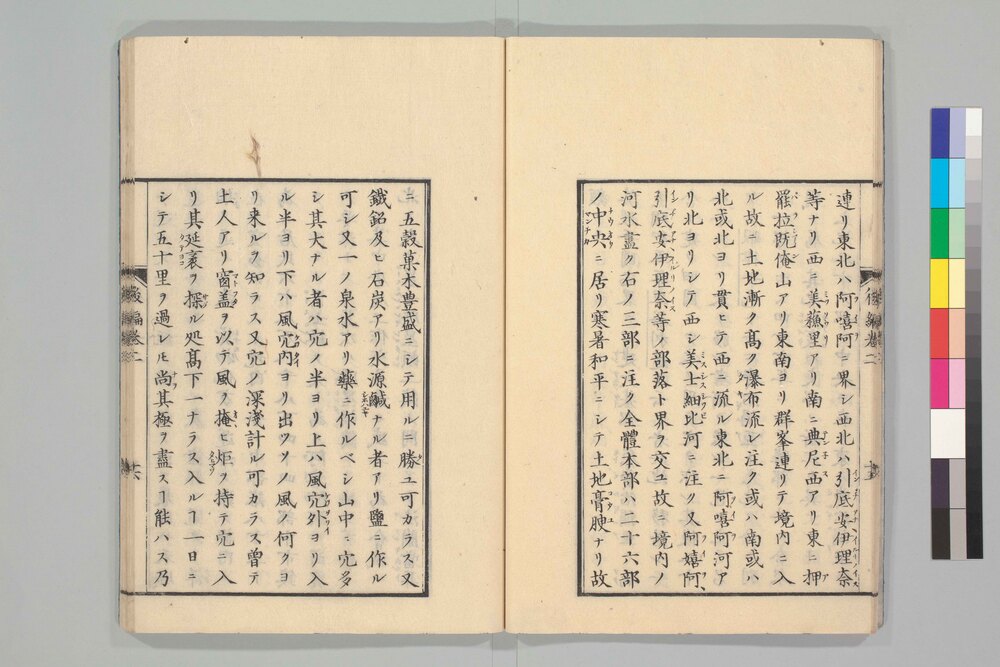 連リ東北ハ阿嘻阿ニ界シ西北ハ引底安伊理奈
等ナリ西ニ美蘓里アリ南ニ典尼西アリ東ニ押
罷拉既俺山アリ東南ヨリ群峯連リテ境内ニ入
ル故ニ土地漸ク髙ク瀑布流レ注ク或ハ南或ハ
北或北ヨリ貫ヒテ西ニ流ル東北ニ阿嘻阿河ア
リ北ヨリシテ西シ美士細比河ニ注ク又阿嬉阿、
引底安伊理奈等ノ部落ト界ヲ交ユ故ニ境内ノ
河水盡ク石ノ三部ニ注ク全體本部ハ二十六部
ノ中央ニ居リ寒暑和平ニシテ土地膏腴ナリ故
ニ五穀菓木豊盛ニシテ用ルニ勝ユ可カラス又
鐵鉛及ヒ石炭アリ水源鹹ナル者アリ鹽ニ作ル
可シ又一ノ泉水アリ藥ニ作ルベシ山中ニ穴多
シ其大ナル者ハ穴ノ半ヨリ上ハ風穴外ヨリ入
ル半ヨリ下ハ風穴内ヨリ出ツソノ風ス何クヨ
リ来ルヲ知ラス又穴ノ深淺計ル可カラス曽テ
土人アリ窗盖ヲ以テ風ヲ掩ヒ炬ヲ持テ穴ニ入
リ其延袤ヲ探ル処髙下一ナラス入ルヿ一日ニ
シテ五十里ヲ過レ𪜈尚其極ヲ盡スヿ能ハス乃
後編巻二